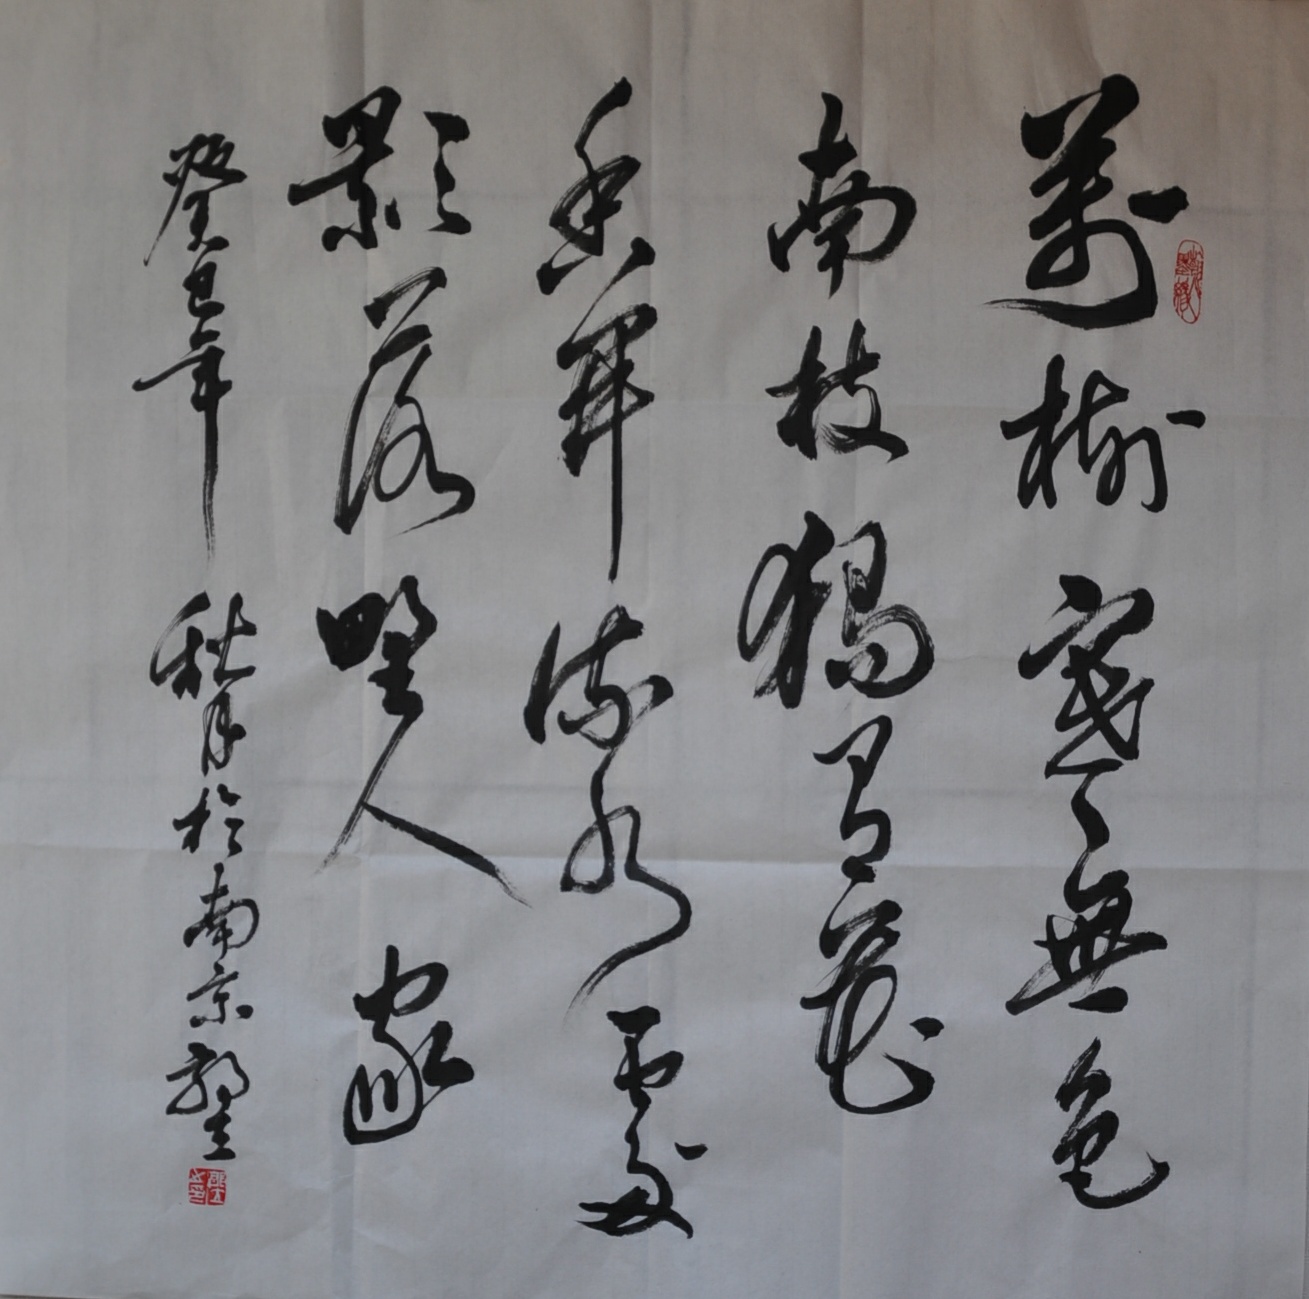 萬樹寒無色
南枝獨有花
香聞流水處
影落野人家
癸巳年秋月於南京